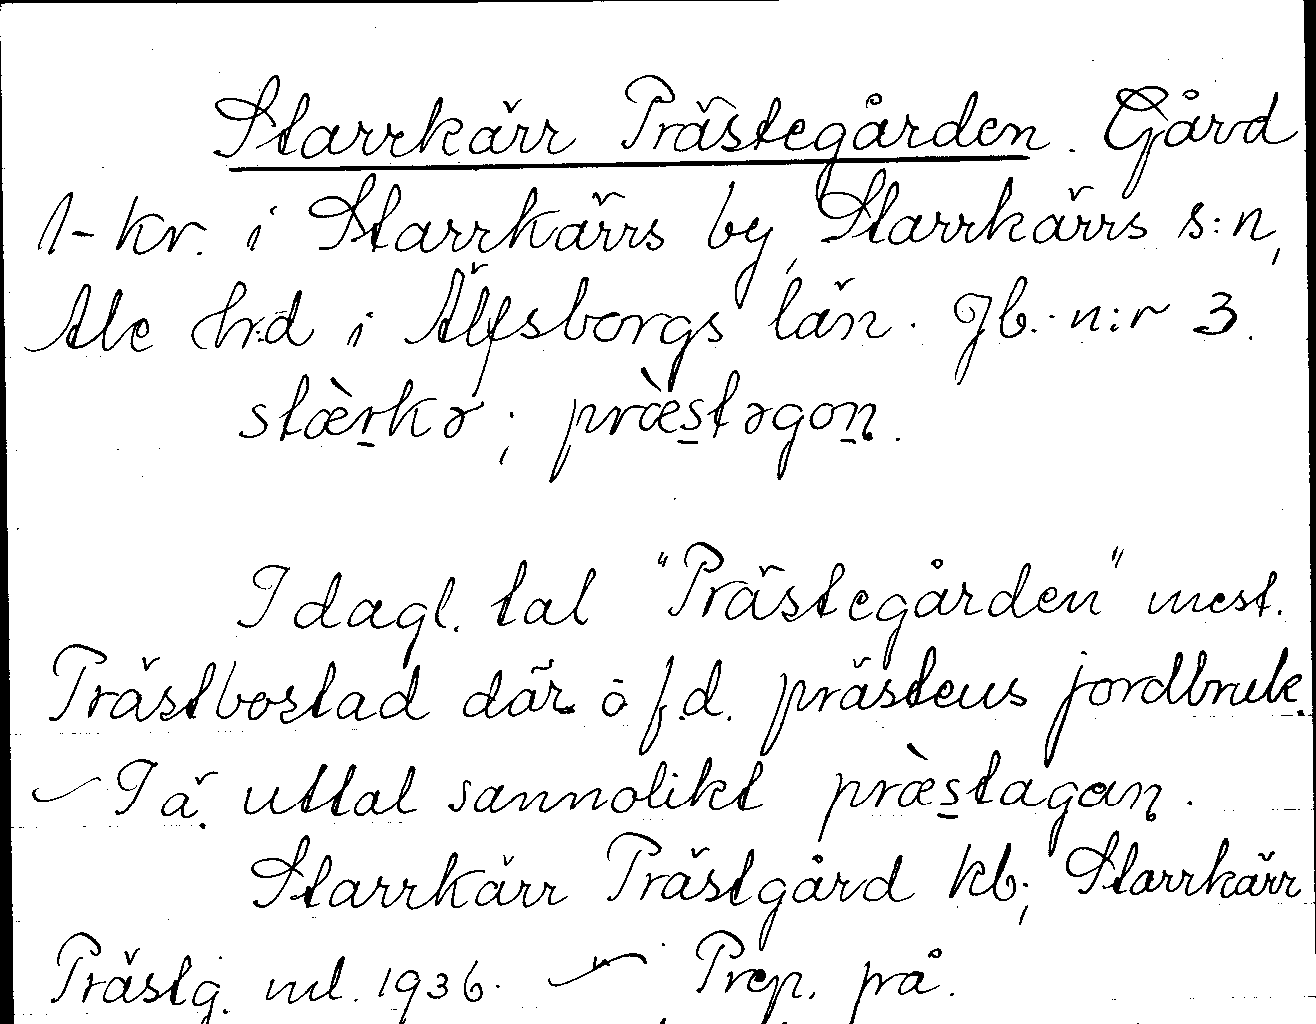 Starrkärr Prästegården. Gård
1-kr. i Starrkärrs by, Starrkärrs s:n,
Ale hrd i Älfsborgs län. Jb. n:r 3.
stæ̀rkə; præ̀stəgoṇ.
I dagl. tal "Prästegården" mest.
Prästbostad där ō f.d. prästens jordbruk.
– I ä. uttal sannolikt præ̀stagaṇ.
Starrkärr Prästgård kb.; Starrkärr
Prästg. ml. 1936. – Prep. på.